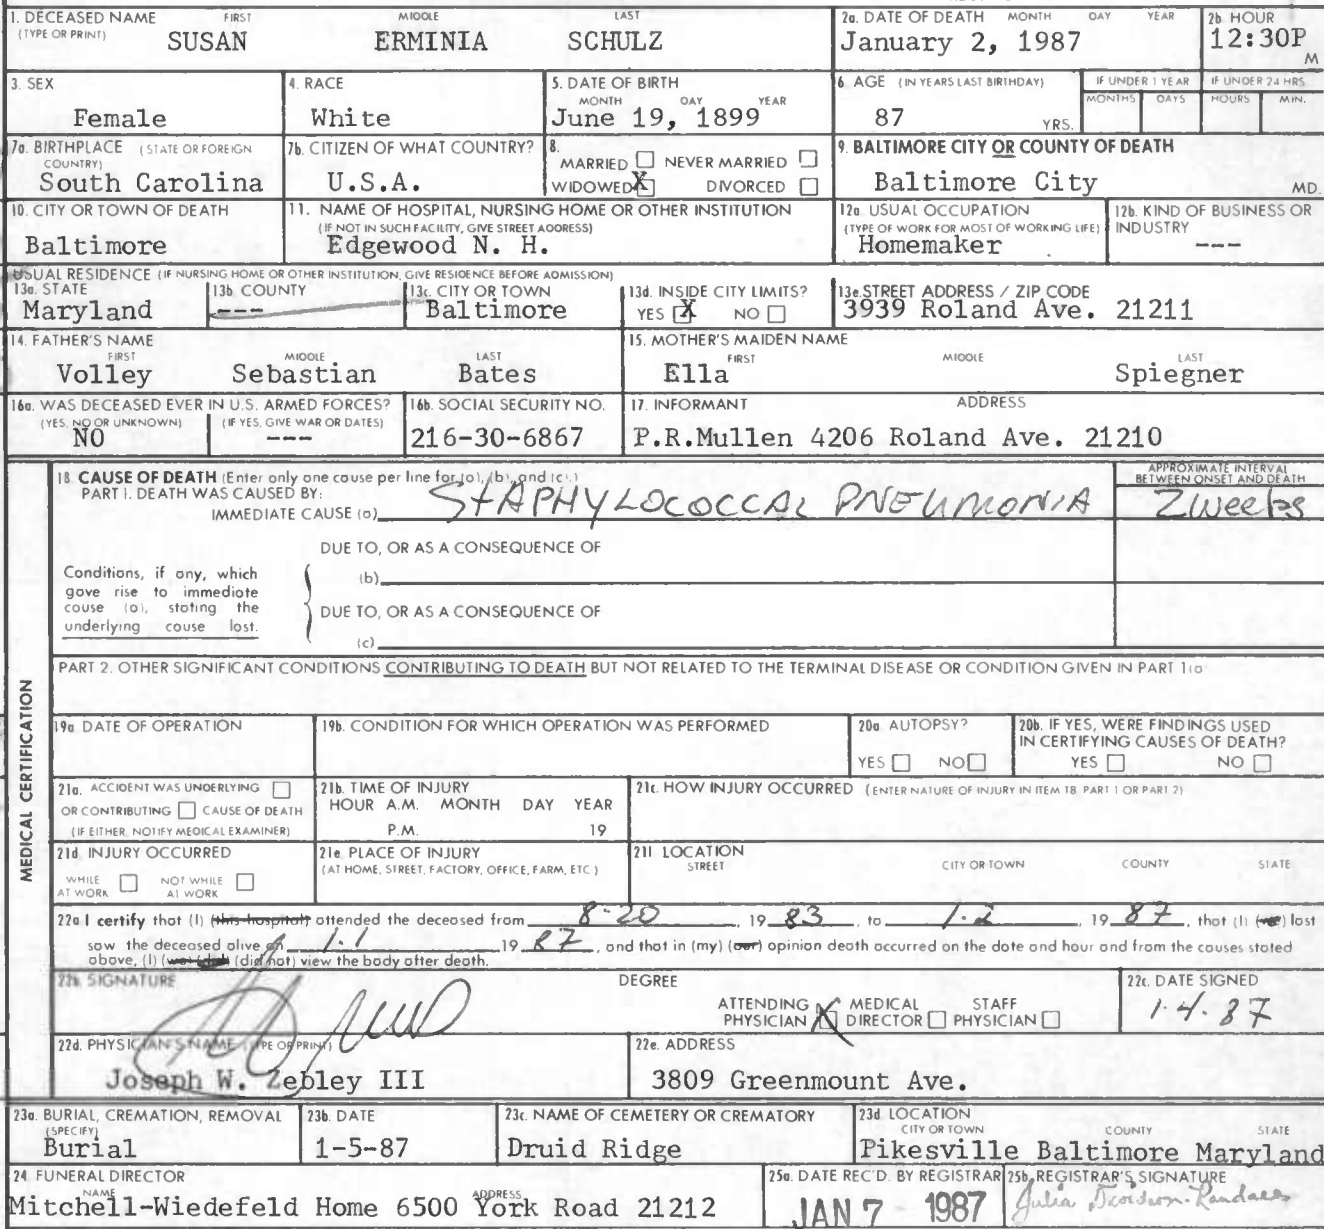 1. DECEASED NAME FIRST MIDDLE LAST
(TYPE OR PRINT) SUSAN ERMINIA SCHULZ
2a. DATE OF DEATH MONTH DAY YEAR
January 2, 1987
2b. HOUR
12:30P M
3. SEX
Female
4. RACE
White
5. DATE OF BIRTH
MONTH DAY YEAR
June 19, 1899
6. AGE (IN YEARS LAST BIRTHDAY)
87 YRS.
IF UNDER 1 YEAR
MONTHS DAYS
IF UNDER 24 HRS
HOURS MIN.
7a. BIRTHPLACE (STATE OR FOREIGN
COUNTRY)
South Carolina
7b. CITIZEN OF WHAT COUNTRY?
U.S.A.
8.
MARRIED NEVER MARRIED
WIDOWED X DIVORCED
9. BALTIMORE CITY OR COUNTY OF DEATH
Baltimore City MD.
10. CITY OR TOWN OF DEATH
Baltimore
11. NAME OF HOSPITAL, NURSING HOME OR OTHER INSTITUTION
(IF NOT IN SUCH FACILITY, GIVE STREET ADDRESS)
Edgewood N. H.
12a. USUAL OCCUPATION
(TYPE OF WORK FOR MOST OF WORKING LIFE)
Homemaker
12b. KIND OF BUSINESS OR
INDUSTRY
---
USUAL RESIDENCE (IF NURSING HOME OR OTHER INSTITUTION, GIVE RESIDENCE BEFORE ADMISSION)
13a. STATE
Maryland
13b. COUNTY
---
13c. CITY OR TOWN
Baltimore
13d. INSIDE CITY LIMITS?
YES X NO
13e. STREET ADDRESS / ZIP CODE
3939 Roland Ave. 21211
14. FATHER'S NAME
FIRST MIDDLE LAST
Volley Sebastian Bates
15. MOTHER'S MAIDEN NAME
FIRST MIDDLE LAST
Ella Spiegner
16a. WAS DECEASED EVER IN U.S. ARMED FORCES?
(YES, NO OR UNKNOWN) (IF YES, GIVE WAR OR DATES)
NO ---
16b. SOCIAL SECURITY NO.
216-30-6867
17. INFORMANT ADDRESS
P.R.Mullen 4206 Roland Ave. 21210
MEDICAL CERTIFICATION
18. CAUSE OF DEATH (Enter only one cause per line for (a), (b), and (c).)
PART I. DEATH WAS CAUSED BY:
IMMEDIATE CAUSE (a) STAPHYLOCOCCAL PNEUMONIA
APPROXIMATE INTERVAL
BETWEEN ONSET AND DEATH
2 weeks
DUE TO, OR AS A CONSEQUENCE OF
(b)
Conditions, if any, which
gave rise to immediate
cause (a), stating the
underlying cause last.
DUE TO, OR AS A CONSEQUENCE OF
(c)
PART 2. OTHER SIGNIFICANT CONDITIONS CONTRIBUTING TO DEATH BUT NOT RELATED TO THE TERMINAL DISEASE OR CONDITION GIVEN IN PART 1(a
19a. DATE OF OPERATION
19b. CONDITION FOR WHICH OPERATION WAS PERFORMED
20a. AUTOPSY?
YES NO
20b. IF YES, WERE FINDINGS USED
IN CERTIFYING CAUSES OF DEATH?
YES NO
21a. ACCIDENT WAS UNDERLYING
OR CONTRIBUTING CAUSE OF DEATH
(IF EITHER, NOTIFY MEDICAL EXAMINER)
21b. TIME OF INJURY
HOUR A.M. MONTH DAY YEAR
P.M. 19
21c. HOW INJURY OCCURRED (ENTER NATURE OF INJURY IN ITEM 18 PART 1 OR PART 2)
21d. INJURY OCCURRED
WHILE AT WORK NOT WHILE AT WORK
21e. PLACE OF INJURY
(AT HOME, STREET, FACTORY, OFFICE, FARM, ETC.)
21f. LOCATION
STREET CITY OR TOWN COUNTY STATE
22a. I certify that (I) (this hospital) attended the deceased from 8-20, 1983, to 1-2, 1987, that (I) (we) last
saw the deceased alive on 1.1 1987, and that in (my) (our) opinion death occurred on the date and hour and from the causes stated
above, (I) (we) (did) (did not) view the body after death.
22b. SIGNATURE
DEGREE
ATTENDING PHYSICIAN X MEDICAL DIRECTOR STAFF PHYSICIAN
22c. DATE SIGNED
1-4-87
22d. PHYSICIAN'S NAME (TYPE OR PRINT)
Joseph W. Zebley III
22e. ADDRESS
3809 Greenmount Ave.
23a. BURIAL, CREMATION, REMOVAL
(SPECIFY)
Burial
23b. DATE
1-5-87
23c. NAME OF CEMETERY OR CREMATORY
Druid Ridge
23d. LOCATION
CITY OR TOWN COUNTY STATE
Pikesville Baltimore Maryland
24. FUNERAL DIRECTOR
NAME ADDRESS
Mitchell-Wiedefeld Home 6500 York Road 21212
25a. DATE REC'D. BY REGISTRAR
JAN 7 1987
25b. REGISTRAR'S SIGNATURE
Julia Davidson-Randall